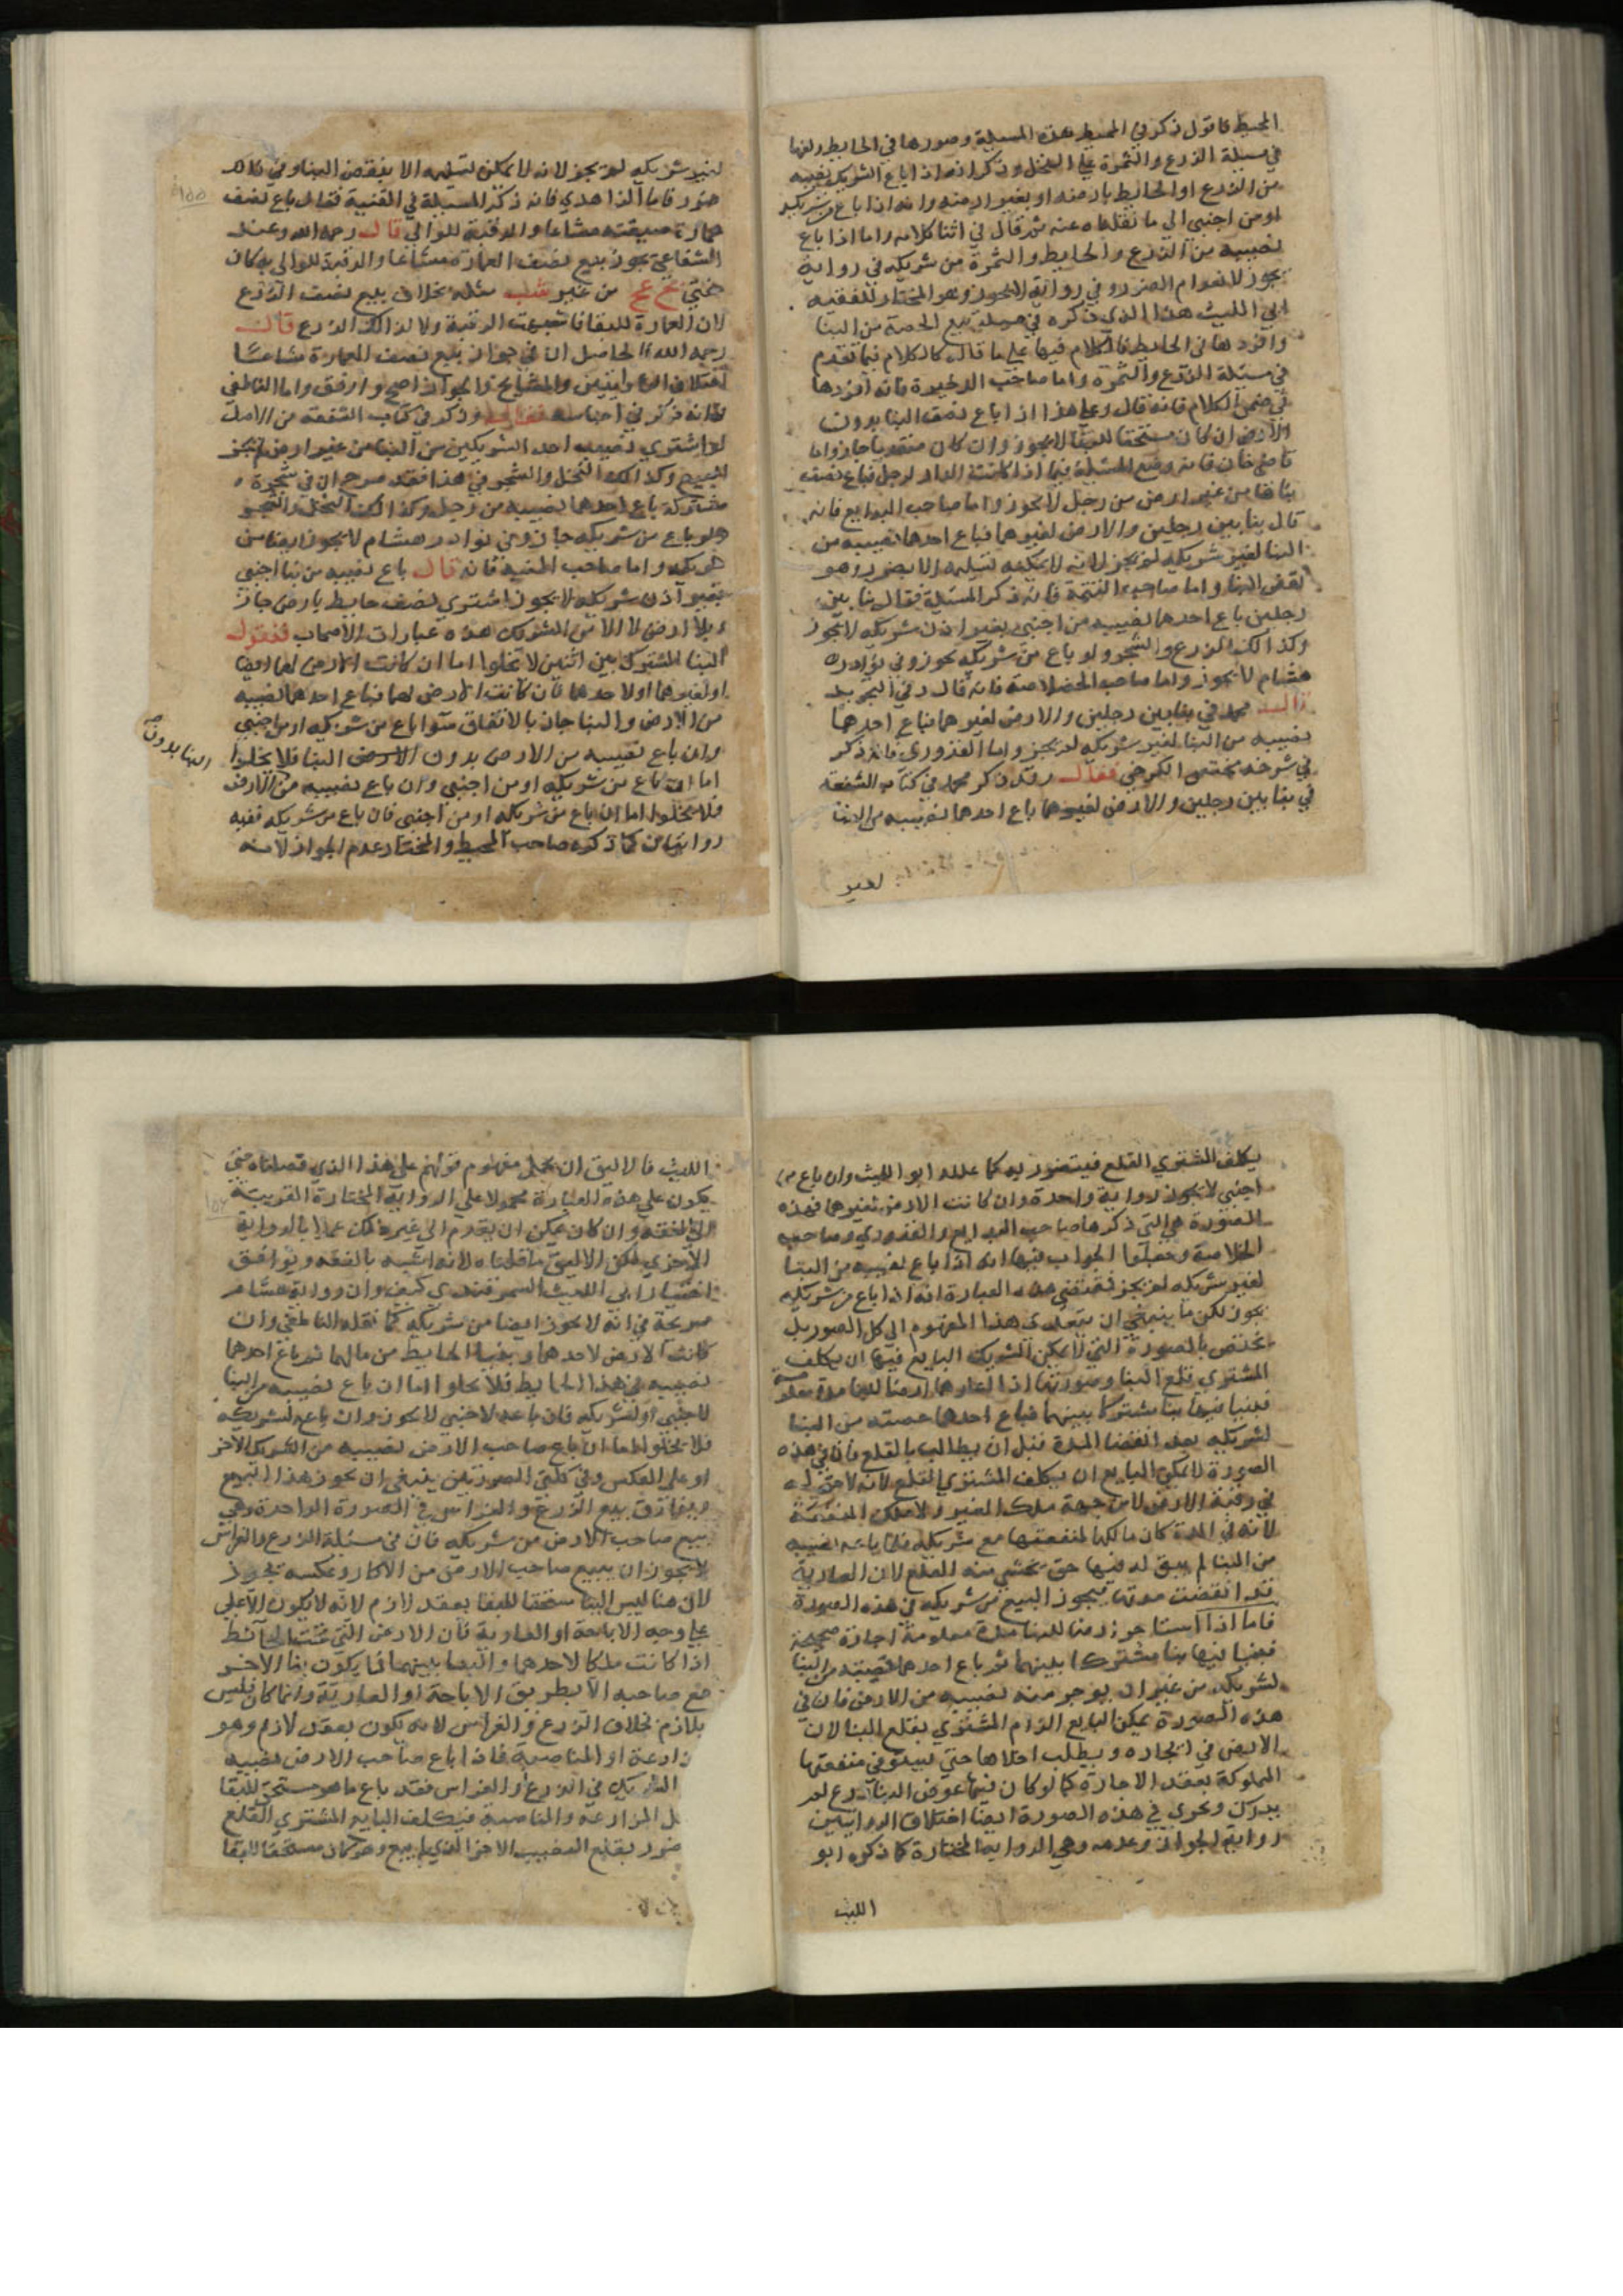 المحيط فاقول ذكر في المحيط هذه المسيلة وصورها في الحايط ولفها
في مسيلة الزرع والثمرة علي النخل وذكر انه اذا باع الشريك نصيبه
من الزرع او الحايط بارضه او بغير ارضه وانه اذا باع من شريكه
او من اجنبي الي ما نقلناه عنه ثم قال في اثنا كلامه واما اذا باع
نصيبه من الزرع والحايط والثمرة من شريكه في رواية
يجوز لانعدام الضرر وفي رواية لايجوز وهو المختار للفقيه
ابي الليث هذا الذي ذكره في مسيلة بيع الحصة من البنا
وافردها في الحايط فالكلام فيها علي ما قال كالكلام فيما تقدم
في مسئلة الزرع والثمرة واما صاحب الدخيرة فانه افردها
في ضمن الكلام فانه قال وعلي هذا اذا باع نصف البنا بدون
الارض ان كان مستحقا للبقا لايجوز وان كان منقوبا جاز واما
قاضي خان فانه وضع المسئلة فيما اذا كانت الدار لرجل فباع نصف
بناها من غير ارض من رجل لايجوز واما صاحب البدايع فانه
قال بنا بين رجلين والارض لغيرهما فباع احدهما نصيبه من
البنا لغير شريكه لم يجز لانه لايمكنه تسليمه الا بضرر وهو
نقض البنا واما صاحب التتمة فانه ذكر المسئلة فقال بنا بين
رجلين باع احدهما نصيبه من اجنبي بغير اذن شريكه لايجوز
وكذا لك الزرع والشجر ولو باع من شريكه يجوز وفي نوادر
هشام لايجوز واما صاحب الخلاصة فانه قال وفي التجريد
قال محمد في بنا بين رجلين والارض لغيرهما فباع احدهما
نصيبه من البنا لغير شريكه لم يجز واما القدوري فانه ذكر
في شرحه مختصر الكرخي فقال وقد ذكر محمد في كتاب الشفعة
في بنا بين رجلين والارض لغيرهما باع احدهما نصيبه من البنا
لغير
لغير شريكه لم يجز لانه لايمكن تسليمه الا بنقض البنا وفي ذلك
ضرر فاما الزاهدي فانه ذكر المسيلة في القنية فقال باع نصف
عمارة مشاعا والرقبة للوالي قال رحمه الله وعند
الشفاعي يجوز بيع نصف العمارة مشاعا والرقبة للوالي به كان
يفتي نج عج من غير شب مثله بخلاف بيع نصف الزرع
لان العمارة للبقا فاشبهت الرقبة ولا كذالك الزرع قال
رحمه الله الحاصل ان في جواز بيع نصف العمارة مشاعا
اختلاف الروايتين والمشايخ والجواز اصح وارفق واما الناطفي
فانه ذكر في اجناسه فقال وذكر في كتاب الشفعة من الاصل
لو اشتري نصيب احد الشريكين من البنا من غير ارض لم يجز
البيع وكذالك النخل والشجر وفي هذا فقد صرح ان في شجرة
مشتركة باع احدهما نصيبه من رجل وكذا لك النخل والشجر
ولو باع من شريكه جاز وفي نوادر هشام لايجوز ايضا من
شريكه واما صاحب المنية فانه قال باع نصيبه من بنا اجنبي
بغير اذن شريكه لايجوز اشتري نصف حايط بارض جاز
وبلا ارض لا الا من الشريك هذه عبارات الاصحاب فنقول
البنا المشترك بين اثنين لا يخلوا اما ان كانت الارض لهما ايضا
او لغيرهما او لاحدهما فان كانت الارض لهما فباع احدهما نصيبه
من الارض والبنا جاز بالاتفاق سوا باع من شريكه او من اجنبي
وان باع نصيبه من الارض بدون الارض البنا فلا يخلوا
البنا بدون
اما ان باع من شريكه او من اجنبي وان باع نصيبه من الارض
فلا يخلوا اما ان باع من شريكه او من اجنبي فان باع من شريكه ففيه
روايتان كما ذكره صاحب المحيط والمختار عدم الجواز لانه
يكلف المشتري القلع فيتضرر به كما علله ابو الليث وان باع من
اجنبي لايجوز رواية واحدة وان كانت الارض لغيرهما فهذه
الصورة هي التي ذكرها صاحب البدايع والقدوري وصاحب
الخلاصة وجعلوا الجواب فيها انه اذا باع نصيبه من البنا
لغير شريكه لم يجز فمقتضي هذه العبارة انه اذا باع من شريكه
يجوز لكن ما ينبغي ان يتعدي هذا المفهوم الي كل الصور بل
يختص بالصورة التي لايمكن الشريك البايع فيها ان يكلف
المشتري قلع البنا وصورتها اذا اعارهما ارضا للبنا مدة معلومة
فبنيا فيها بنا مشتركا بينهما فباع احدهما حصته من البنا
لشريكه بعد انقضا المدة قبل ان يطالب بالقلع فان في هذه
الصورة لايمكن البايع ان يكلف المشتري القلع لانه لا حق له
في رقبة الارض لا من جهة ملك الغير ولا ملك المنفعة
لانه في المدة كان مالكها لمنفعتها مع شريكه فلما باعه نصيبه
من البنا لم يبق له فيها حق يخشي منه القلع لان العارية
قد انقضت مدتها فيجوز البيع من شريكه في هذه الصورة
فاما اذا استاجر ارضا للبنا مدة معلومة اجارة صحيحة
فبنيا فيها بنا مشتركا بينهما ثم باع احدهما نصيبه من البنا
لشريكه من غير ان يوجر منه نصيبه من الارض فان في
هذه الصورة يمكن البايع الزام المشتري بقلع البنا لان
الارض في ايجاره ويطلب اخلاها حتي يستوفي منفعتها
المملوكة بعقد الاجارة كما لو كان فيها عوض البنا زرع لم
يدرك ويجري في هذه الصورة ايضا اختلاف الروايتين
رواية الجواز وعدمه وهي الرواية المختارة كما ذكره ابو
الليث
الليث فالاليق ان يحمل مفهوم قولهم علي هذا الذي فصلناه حتي
يكون علي هذه العبارة محمولا علي الرواية المختارة القريبة
الي الفقه وان كان يمكن ان يقدم الي غيره لكن عملا بالرواية
الاخري لكن الاليق ما قلناه لانه اشبه بالفقه ويوافق
اختيار ابي الليث السمرقندي كيف وان رواية هشام
صريحة في انه لايجوز ايضا من شريكه كما نقله الناطفي وان
كانت الارض لاحدهما وبنيا الحايط من مالهما ثم باع احدهما
نصيبه من هذا الحايط فلا يخلوا اما ان باع نصيبه من البنا
لاجنبي او لشريكه فان باعه لاجنبي لايجوز وان باعه لشريكه
فلا يخلوا اما ان باع صاحب الارض نصيبه من الشريك الاخر
او علي العكس وفي كلتي الصورتين ينبغي ان يجوز هذا البيع
ويفارق بيع الزرع والغراس في الصورة الواحدة وهي
بيع صاحب الارض من شريكه فان في مسئلة الزرع والغراس
لايجوز ان يبيع صاحب الارض من الاكار وعكسه يجوز
لان هنا ليس البنا مستحقا للبقا بعقد لازم لانه لايكون الا علي
علي وجه الاباحة او العارية فان الارض التي تحت الحائط
اذا كانت ملكا لاحدهما والبنا بينهما فا يكون بنا الاخر
مع صاحبه الا بطريق الاباحة او العارية وانما كان فليس
بلازم بخلاف الزرع والغراس لانه يكون بعقد لازم وهو
زارعة او المناصبة فاذا باع صاحب الارض نصيبه
الشريك في الزرع او الغراس فقد باع ما هو مستحق للبقا
ل المزارعة والمناصبة فيكلف البايع المشتري القلع
ضرر بقلع النصيب الاخر الذي لم يبع وهو كان مستحقا للبقا